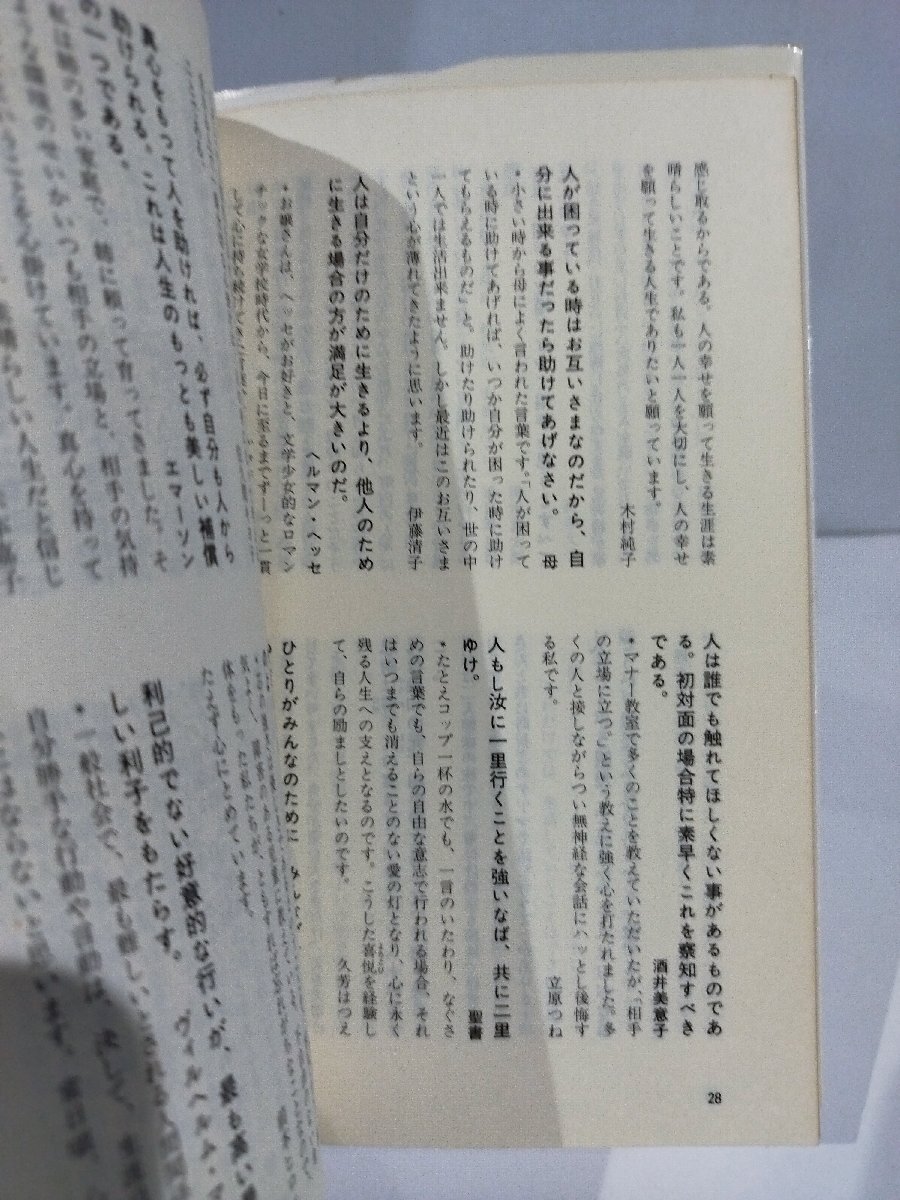 感じ取るからである。人の幸せを願って生きる生涯は素
晴らしいことです。私も一人一人を大切にし、人の幸せ
を願って生きる人生でありたいと願っています。
木村純子
人が困っている時はお互いさまなのだから、自
分に出来る事だったら助けてあげなさい。 母
・小さい時から母によく言われた言葉です。「人が困って
いる時に助けてあげれば、いつか自分が困った時に助け
てもらえるものだ」と、助けたり助けられたり、世の中
一人では生活出来ません。しかし最近はこのお互いさま
という心が薄れてきたように思います。 伊藤清子
人は自分だけのために生きるより、他人のため
に生きる場合の方が満足が大きいのだ。
ヘルマン・ヘッセ
・お嬢さんは、ヘッセがお好きと、文学少女的なロマン
チックな女学校時代から、今日に至るまでずーっと一貫
して心に持ち続けてきた
人は誰でも触れてほしくない事があるものであ
る。初対面の場合特に素早くこれを察知すべき
である。 酒井美意子
・マナー教室で多くのことを教えていただいたが、「相手
の立場に立つ」という教えに強く心を打たれました。多
くの人と接しながらつい無神経な会話にハッとし後悔す
る私です。 立原つね
人もし汝に一里行くことを強いなば、共に二里
ゆけ。 聖書
・たとえコップ一杯の水でも、一言のいたわり、なぐさ
めの言葉でも、自らの自由な意志で行われる場合、それ
はいつまでも消えることのない愛の灯となり、心に永く
残る人生への支えとなるのです。こうした喜悦を経験し
て、自らの励ましとしたいのです。 久芳はつえ
ひとりがみんなのために
28
真心をもって人を助ければ、必ず自分も人から
助けられる。これは人生のもっとも美しい補償
の一つである。 エマーソン
私は姉の多い家庭で、姉に頼って育ってきました。そ
いつも相手の立場と、相手の気持
ことを心掛けています。真心を持って
素晴らしい人生だと信じ
たえず心にとめています。
利己的でない好意的な行いが、最も
しい利子をもたらす。
ヴィルヘルム・
・一般社会で、最も
自分勝手な行動や言動は